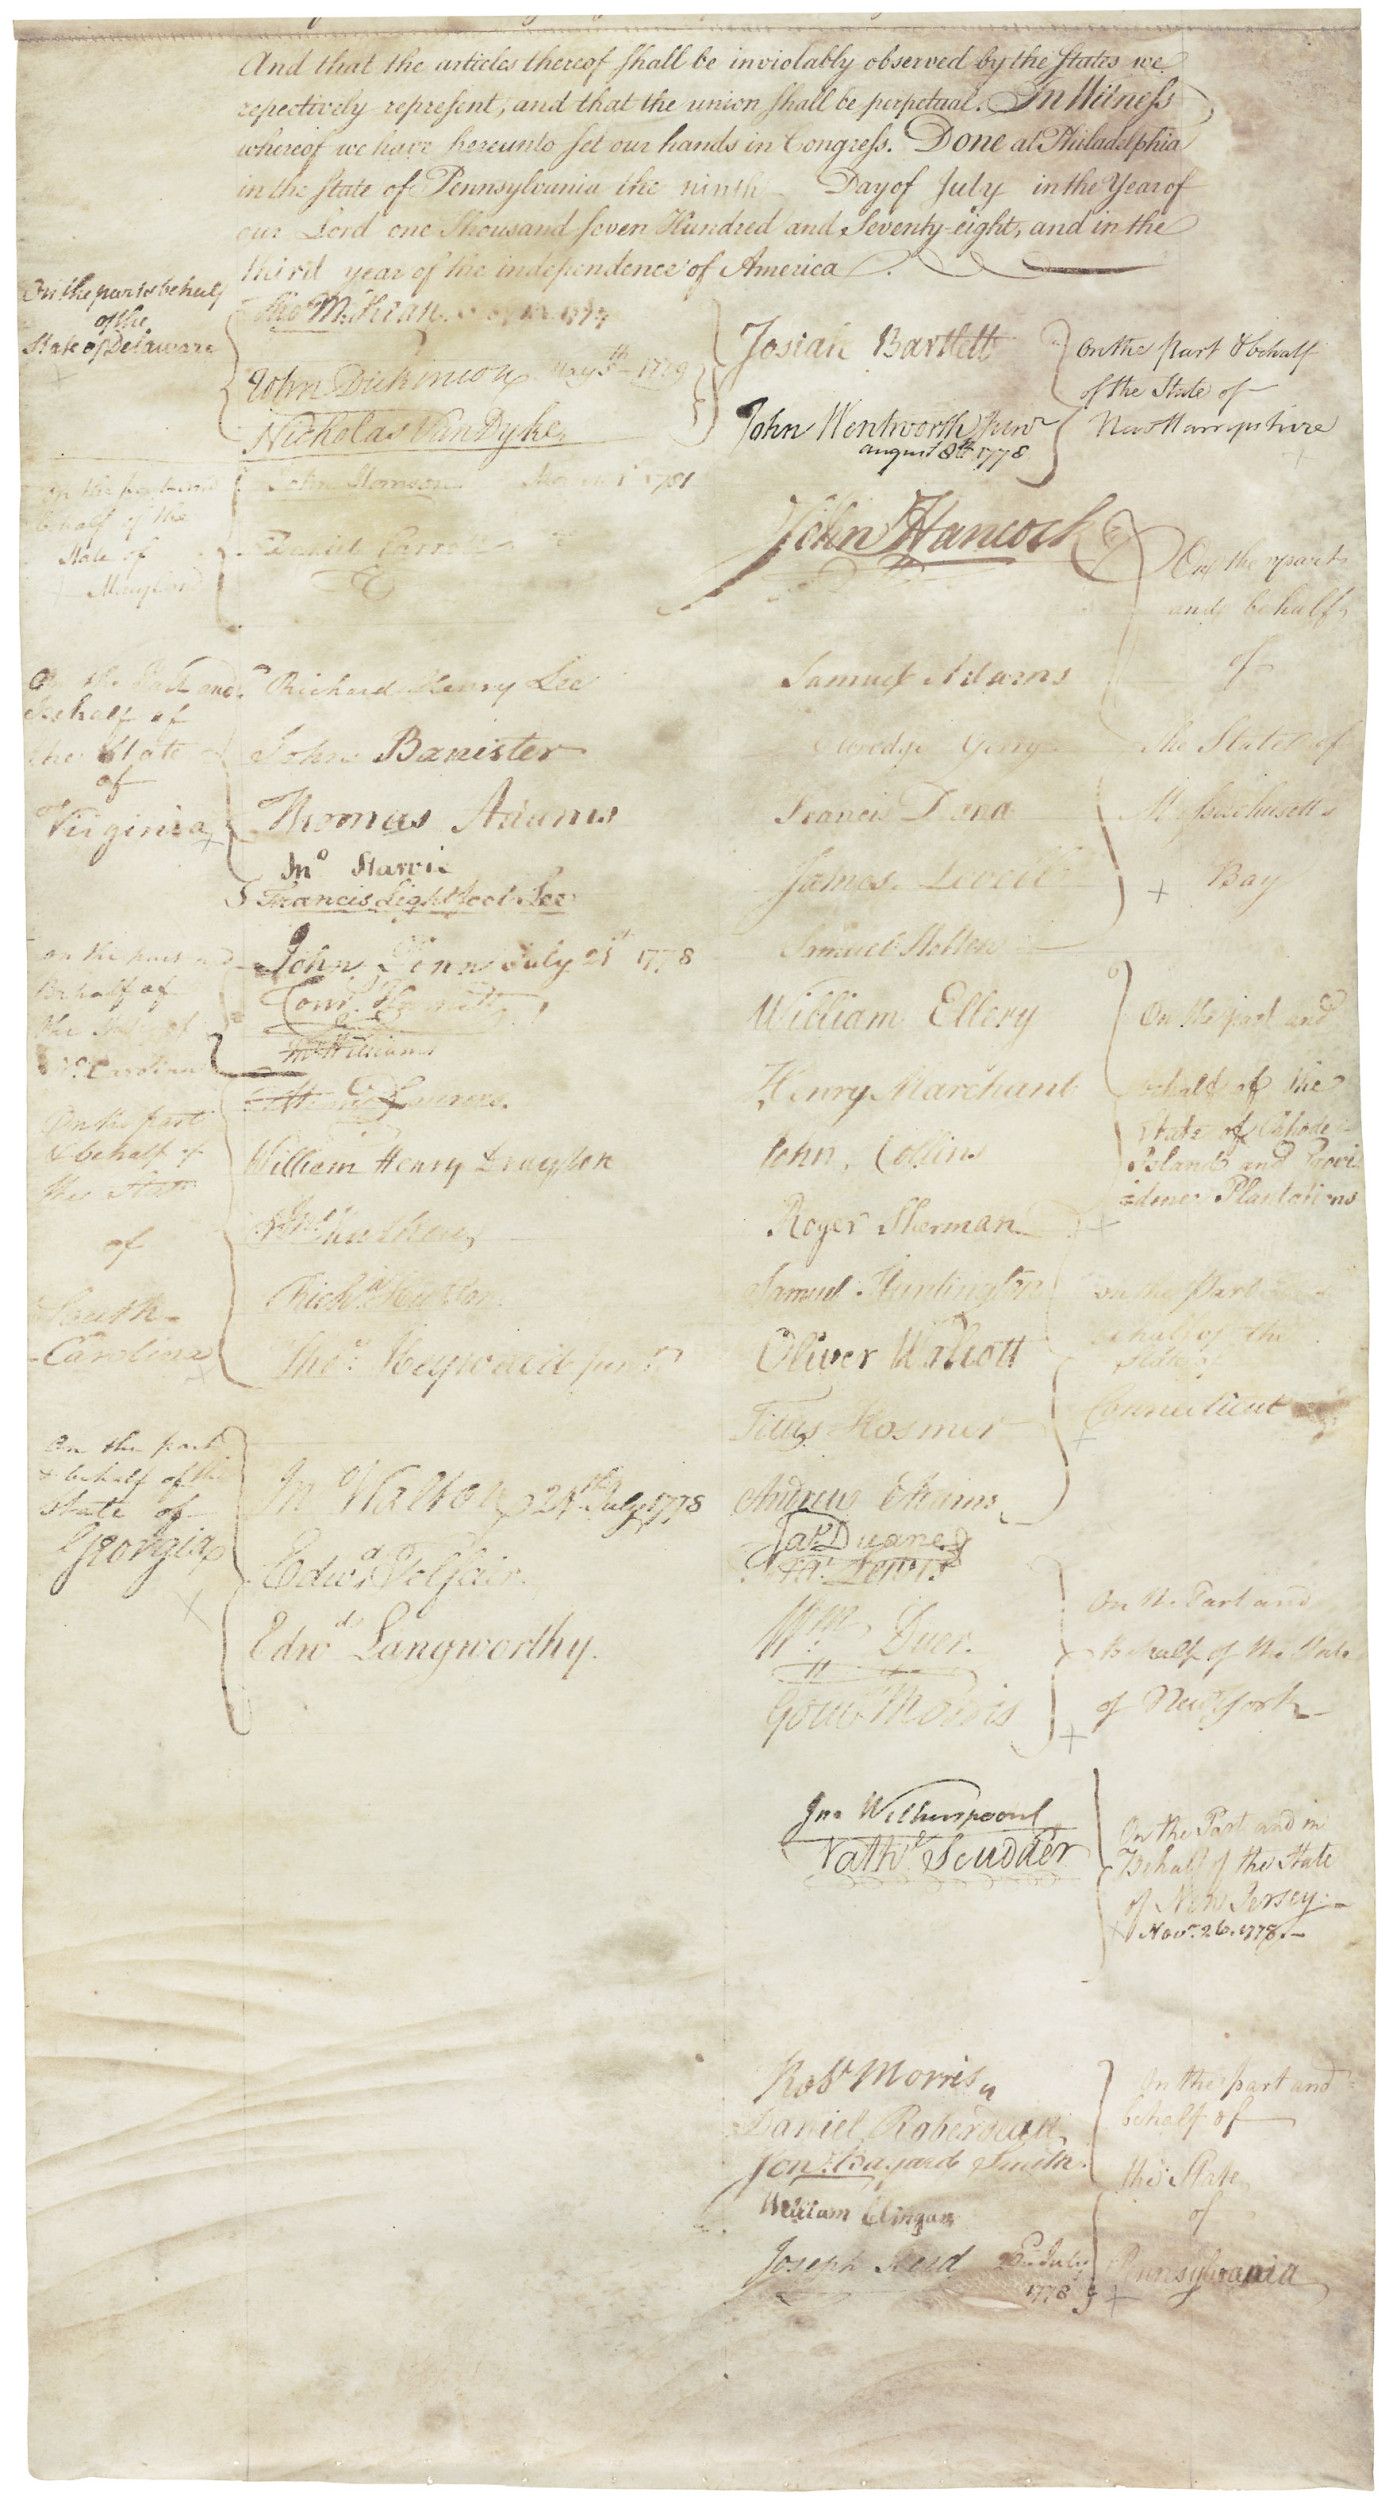 And that the articles thereof shall be inviolably observed by the States we
repectively represent, and that the union shall be perpetual. In Witness
whereof we have hereunto set our hands in Congress. Done at Philadelphia
in the State of Pennsylvania the ninth Day of July in the Year of
our Lord one Thousand seven Hundred and Seventy-eight, and in the
third year of the independence of America.
On the part & behalf
of the
State of Delaware
Tho M:Kean
John Dickinson May 5th 1779
Nicholas Van Dyke,
On the part and
behalf of the
State of
Maryland
John Hanson March 1 1781
Daniel Carroll
On the Part and
Behalf of
the State
of
Virginia
Richard Henry Lee
John Banister
Thomas Adams
Jno Harvie
Francis Lightfoot Lee
on the part and
Behalf of
the State of
No. Carolina
John Penn July 21st 1778
Corns Harnett
Jno Williams
On the part
& behalf of
the State
of
South-
Carolina
Henry Laurens.
William Henry Drayton
Jno Mathews
Richd Hutson
Thos Heyward junr
On the part
& behalf of the
State of
Georgia
Jno Walton 24th July 1778
Edwd Telfair.
Edwd Langworthy.
Josiah Bartlett
John Wentworth junr
august 8th 1778
On the part & behalf
of the State of
New Hampshire
John Hancock
Samuel Adams
Elbridge Gerry
Francis Dana
James Lovell
Samuel Holten
On the part
and behalf
of
The State of
Massachusetts
Bay
William Ellery
Henry Marchant
John Collins
On the part and
behalf of the
State of Rhode
Island and Provi
=dence Plantations
Roger Sherman
Samuel Huntington
Oliver Wolcott
Titus Hosmer
Andrew Adams
on the Part
behalf of the
State of
Connecticut
Jas Duane
Fra: Lewis
Wm Duer.
Gouvr Morris
On the Part and
Behalf of the State
of New York
Jno Witherspoon
Nathl Scudder
On the Part and in
Behalf of the State
of New Jersey.
Novr. 26. 1778.-
Robt Morris
Daniel Roberdeau
Jona: Bayard Smith.
William Clingan
Joseph Reed 22d July
1778
On the part and
behalf of
the State
of
Pennsylvania